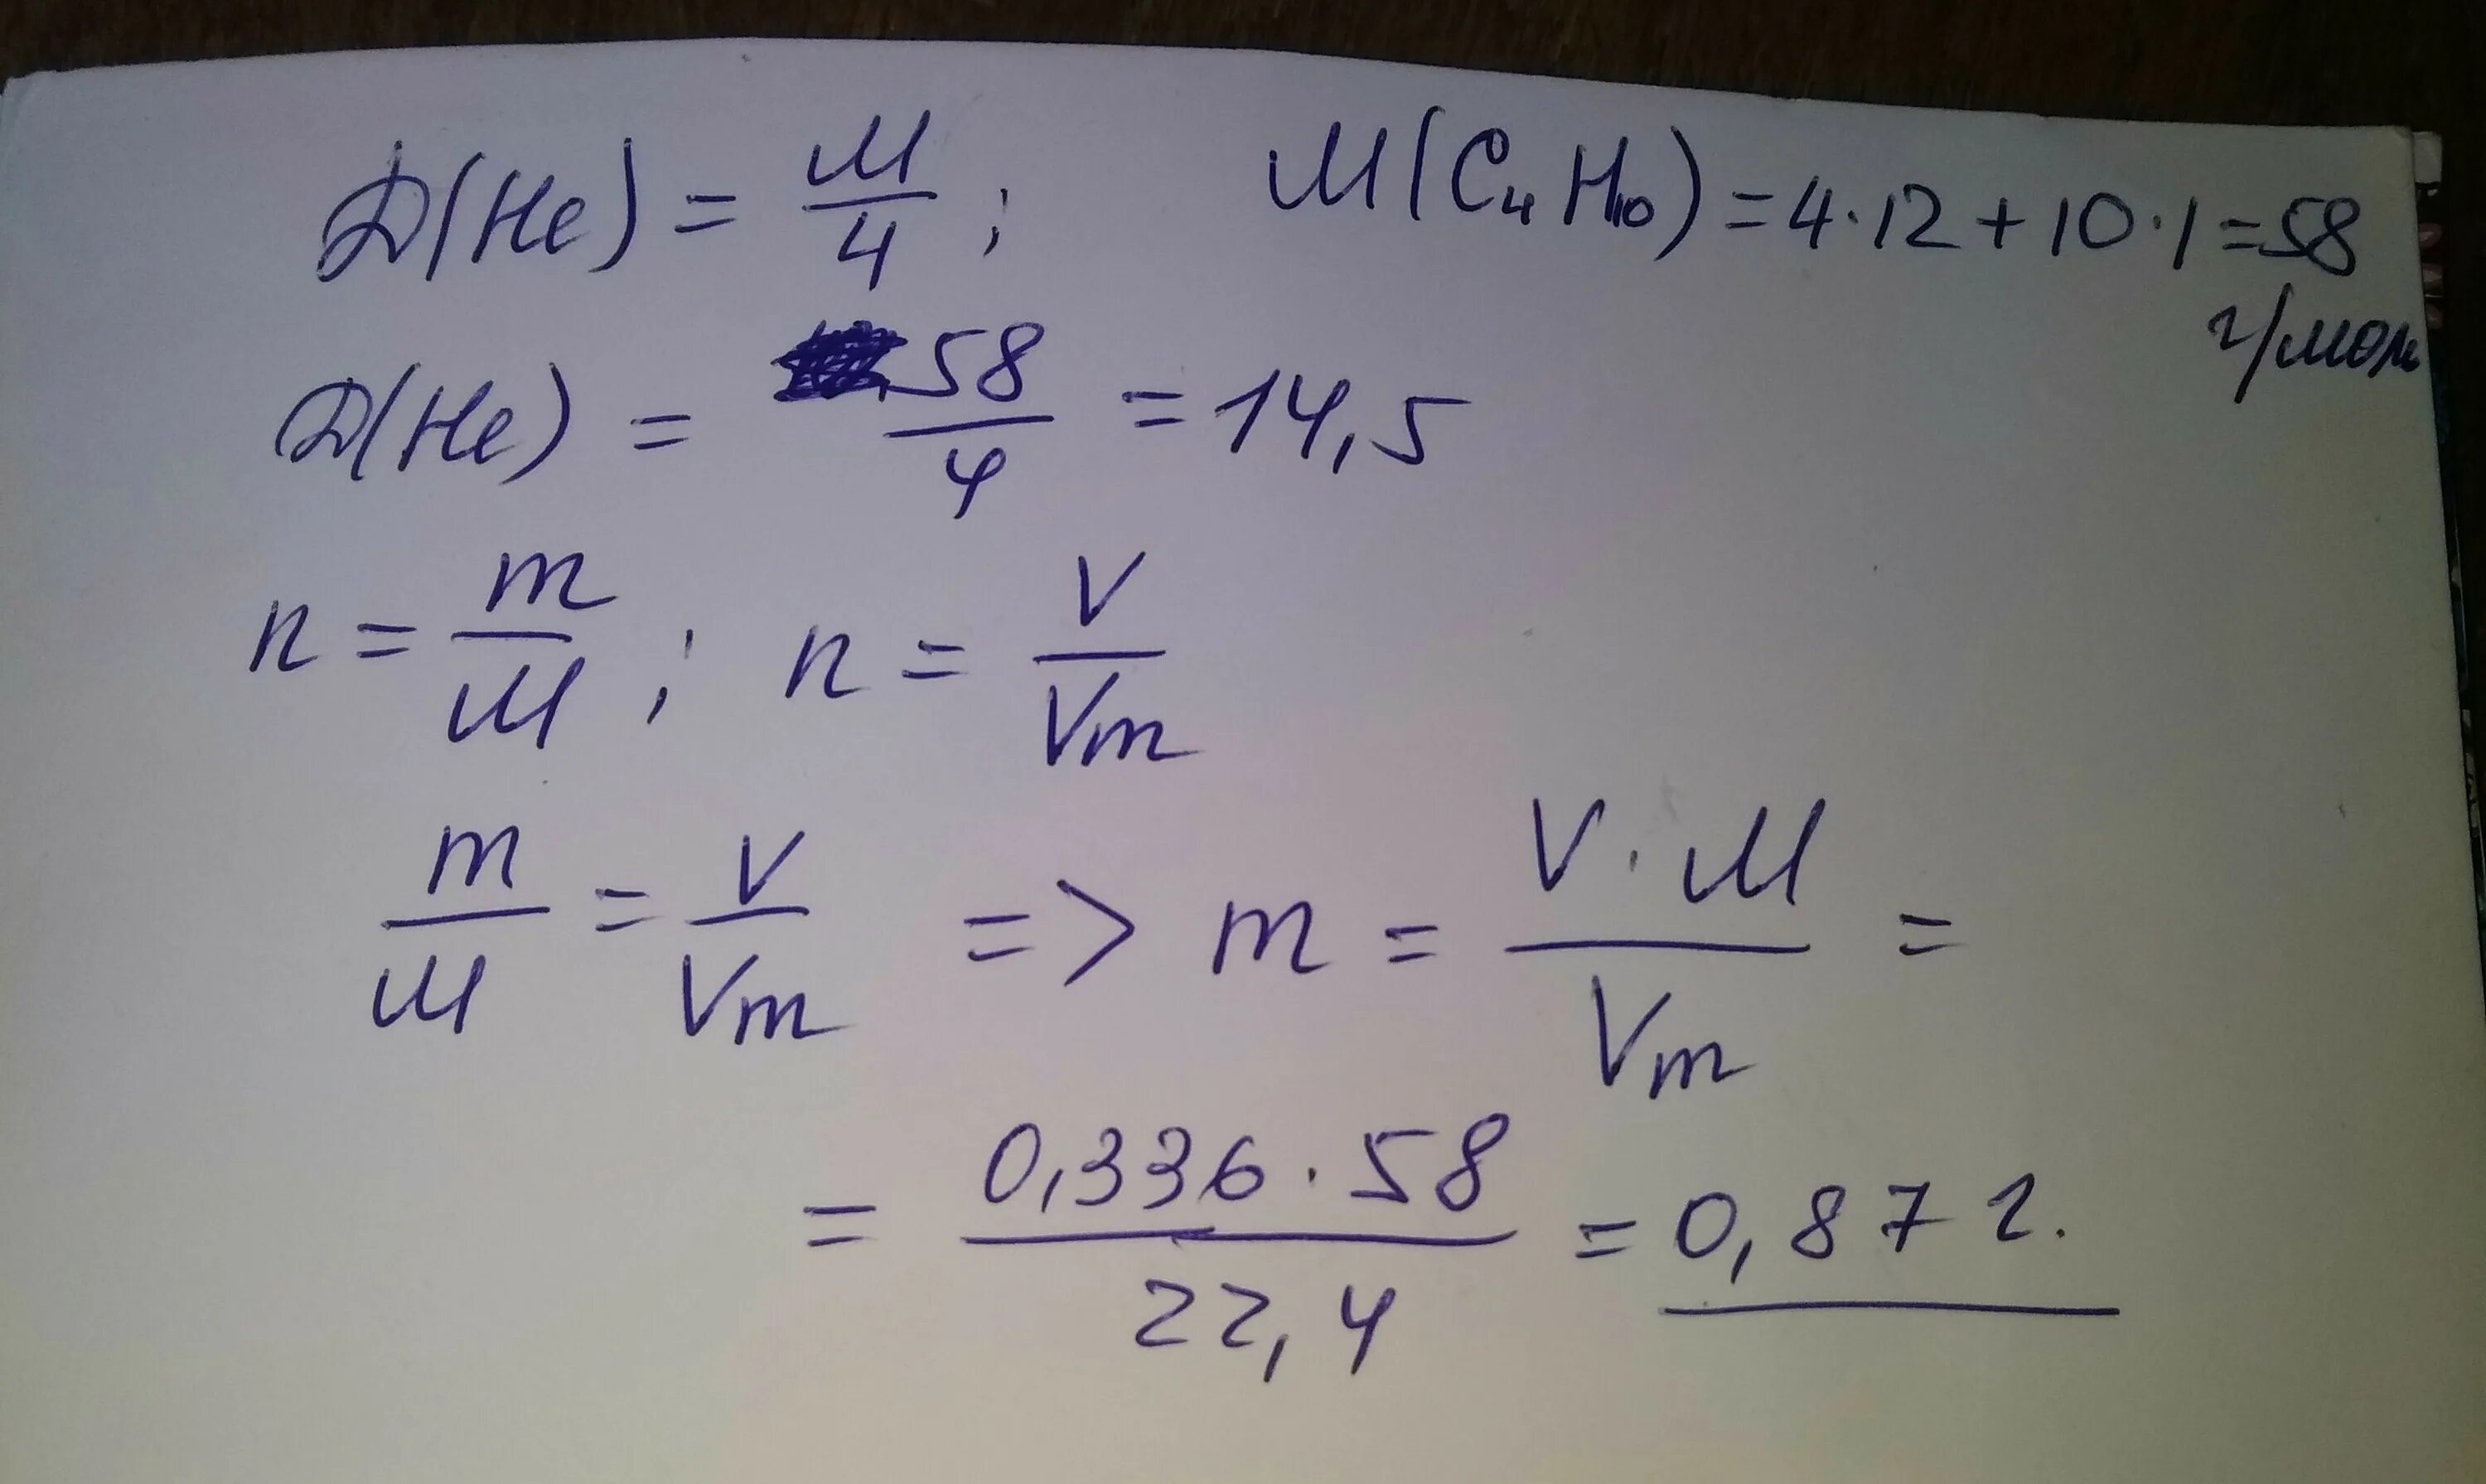 D(He) = M/4 ; M(C₄H₁₀) = 4·12 + 10·1 = 58
г/моль
D(He) = 58/4 = 14,5
n = m/M ; n = V/Vm
m/M = V/Vm => m = V·M/Vm =
= 0,336·58/22,4 = 0,87 г.